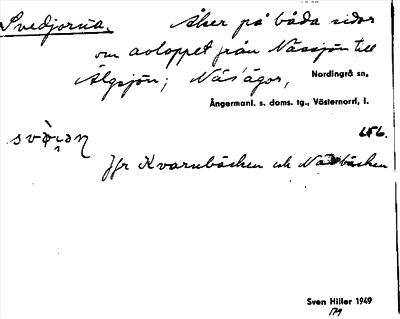 Svedjorna. Åker på båda sidor
om avloppet från Nässjön till
Älgsjön; Näs' ägor, Nordingrå sn,
Ångermanl. s. doms. tg., Västernorrl. l.
656.
Jfr Kvarnbäcken och Näsbäcken
Sven Hiller 1949
179